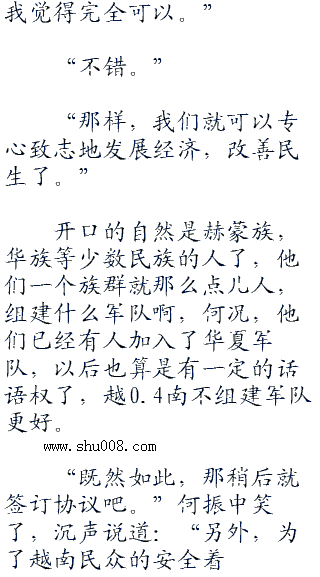 我觉得完全可以。”
“不错。”
“那样，我们就可以专
心致志地发展经济，改善民
生了。”
开口的自然是赫蒙族，
华族等少数民族的人了，他
们一个族群就那么点儿人，
组建什么军队啊，何况，他
们已经有人加入了华夏军
队，以后也算是有一定的话
语权了，越0.4南不组建军队
更好。
www.shu008.com
“既然如此，那稍后就
签订协议吧。”何振中笑
了，沉声说道：“另外，为
了越南民众的安全着